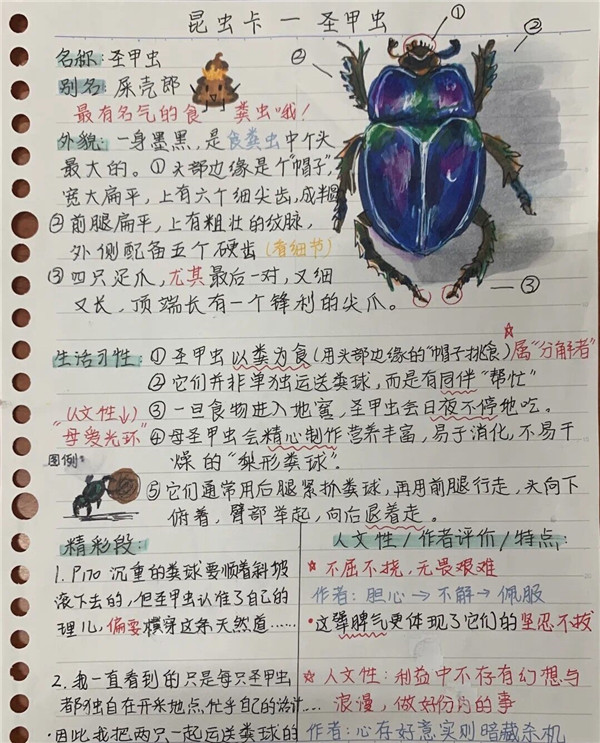 昆虫卡 — 圣甲虫
①
②
②
③
名称: 圣甲虫
别名: 屎壳郎
最有名气的食 粪虫哦！
外貌: 一身墨黑，是食粪虫中个头
最大的。①头部边缘是个"帽子"，
宽大扁平，上有六个细尖齿，成半圆
②前腿扁平，上有粗壮的纹脉，
外侧配备五个硬齿（有细节）
③四只足爪，尤其最后一对，又细
又长，顶端长有一个锋利的尖爪。
生活习性: ①圣甲虫以粪为食(用头部边缘的"帽子"挑食) 属"分解者"
②它们并非单独运送粪球，而是有同伴"帮忙"
③一旦食物进入地窖，圣甲虫会日夜不停地吃。
(人文性↓)
"母爱光环"
④母圣甲虫会精心制作营养丰富，易于消化，不易干
燥的"梨形粪球"。
图例:
⑤它们通常用后腿紧抓粪球，再用前腿行走，头向下
俯着，臂部举起，向后退着走。
精彩段:
1. P170 沉重的粪球要顺着斜坡
滚下去的，但圣甲虫认准了自己的
理儿，偏要横穿这条天然道……
2. 我一直看到的只是每只圣甲虫
都独自在开采地点，忙乎自己的
·因此我把两只一起运送粪球的
人文性/作者评价/特点:
不屈不挠，无畏艰难
作者: 担心→不解→佩服
·这犟脾气更体现了它们的坚忍不拔
人文性: 利益中不存有幻想与
浪漫，做好份内的事
作者: 心存好意实则暗藏杀机